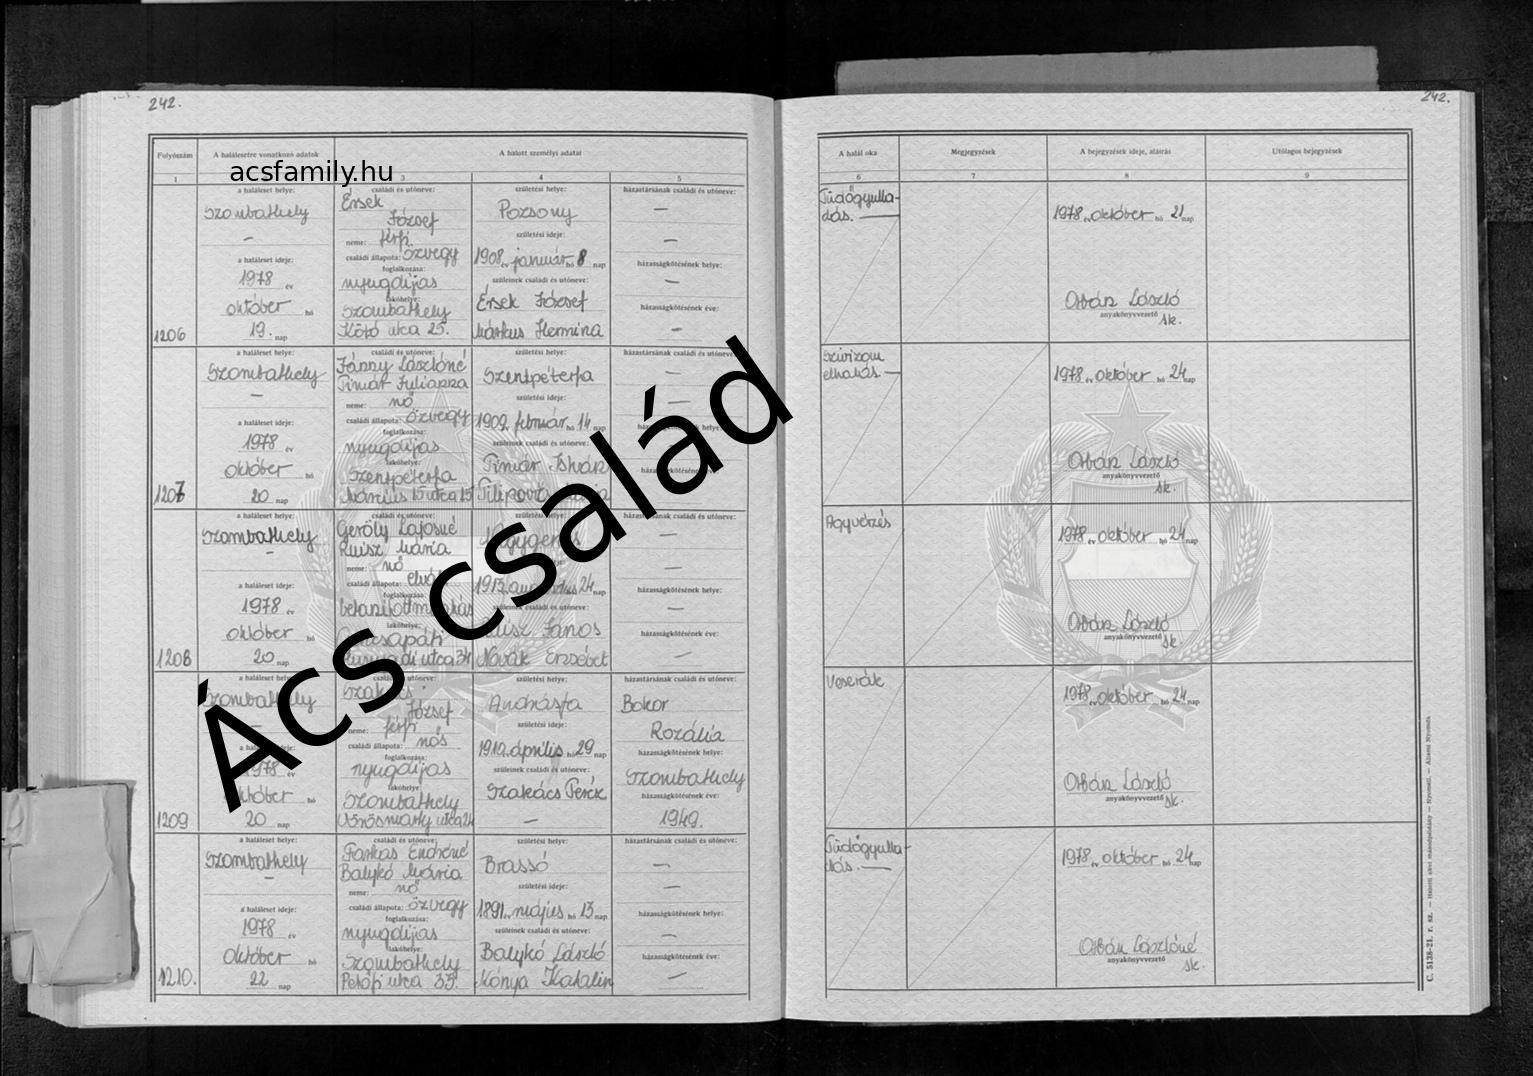 242.
242.
Folyószám
A halálesetre vonatkozó adatok
A halott személyi adatai
A halál oka
Megjegyzések
A bejegyzések ideje, aláírás
Utólagos bejegyzések
acsfamily.hu
1
3
4
5
6
7
8
9
Ács család
1206
a haláleset helye:
Szombathely
—
a haláleset ideje:
1978 év
október hó
19. nap
családi és utóneve:
Érsek
József
neme: férfi
családi állapota: özvegy
foglalkozása:
nyugdíjas
lakóhelye:
Szombathely
Kötő utca 25.
születési helye:
Pozsony
születési ideje:
1908 év január hó 8 nap
szüleinek családi és utóneve:
Érsek József
Márkus Hermina
házastársának családi és utóneve:
—
—
házasságkötésének helye:
—
házasságkötésének éve:
—
Tüdőgyulla-
dás. —
1978 év október hó 21 nap
Orbán László
anyakönyvvezető
sk.
1207
a haláleset helye:
Szombathely
—
a haláleset ideje:
1978 év
október hó
20 nap
családi és utóneve:
Fánny Lászlóné
Timár Julianna
neme: nő
családi állapota: özvegy
foglalkozása:
nyugdíjas
lakóhelye:
Szentpéterfa
Március 15 utca 15
születési helye:
Szentpéterfa
születési ideje:
1909 év február hó 14 nap
szüleinek családi és utóneve:
Timár István
házastársának családi és utóneve:
—
—
Szívizom
elhalás. —
1978 év október hó 24 nap
Orbán László
anyakönyvvezető
sk.
1208
a haláleset helye:
Szombathely
—
a haláleset ideje:
1978 év
október hó
20 nap
családi és utóneve:
Gerőly Lajosné
Mária
neme: nő
családi állapota:
foglalkozása:
betanított munkás
lakóhelye:
utca 34
születési helye:
1913 24 nap
szüleinek családi és utóneve:
János
Novák Erzsébet
házastársának családi és utóneve:
—
—
házasságkötésének helye:
—
házasságkötésének éve:
—
Agyvérzés
1978 év október hó 24 nap
Orbán László
anyakönyvvezető
sk.
1209
a haláleset helye:
Szombathely
—
1978 év
október hó
20 nap
családi és utóneve:
Szakács
József
neme: férfi
családi állapota: nős
foglalkozása:
nyugdíjas
lakóhelye:
Szombathely
Vörösmarty utca 24
születési helye:
Andrásfa
születési ideje:
1910. év április hó 29 nap
szüleinek családi és utóneve:
Szakács Teréz
—
házastársának családi és utóneve:
Bokor
Rozália
házasságkötésének helye:
Szombathely
házasságkötésének éve:
1949.
Veserák
1978 év október hó 24 nap
Orbán László
anyakönyvvezető
sk.
1210.
a haláleset helye:
Szombathely
—
a haláleset ideje:
1978 év
október hó
22 nap
családi és utóneve:
Farkas Endréné
Balykó Mária
neme: nő
családi állapota: özvegy
foglalkozása:
nyugdíjas
lakóhelye:
Szombathely
Petőfi utca 35.
születési helye:
Brassó
születési ideje:
1891 év május hó 13 nap
szüleinek családi és utóneve:
Balykó László
Kónya Katalin
házastársának családi és utóneve:
—
—
házasságkötésének helye:
—
házasságkötésének éve:
—
Tüdőgyulla-
dás. —
1978 év október hó 24 nap
Orbán Lászlóné
anyakönyvvezető
sk.
C. 5128-21. r. sz.